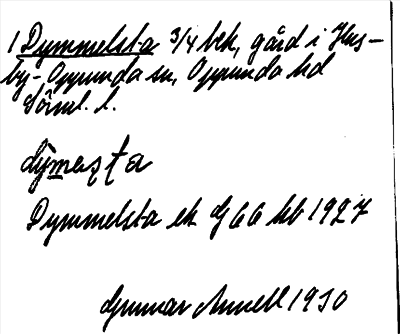 1 Dymmelsta 3/4 bek, gård i Hus-
by-Oppunda sn, Oppunda hd
Söml. l.
dymesta
Dymmelsta ek G 66 hb 1927
Gunnar Annell 1930